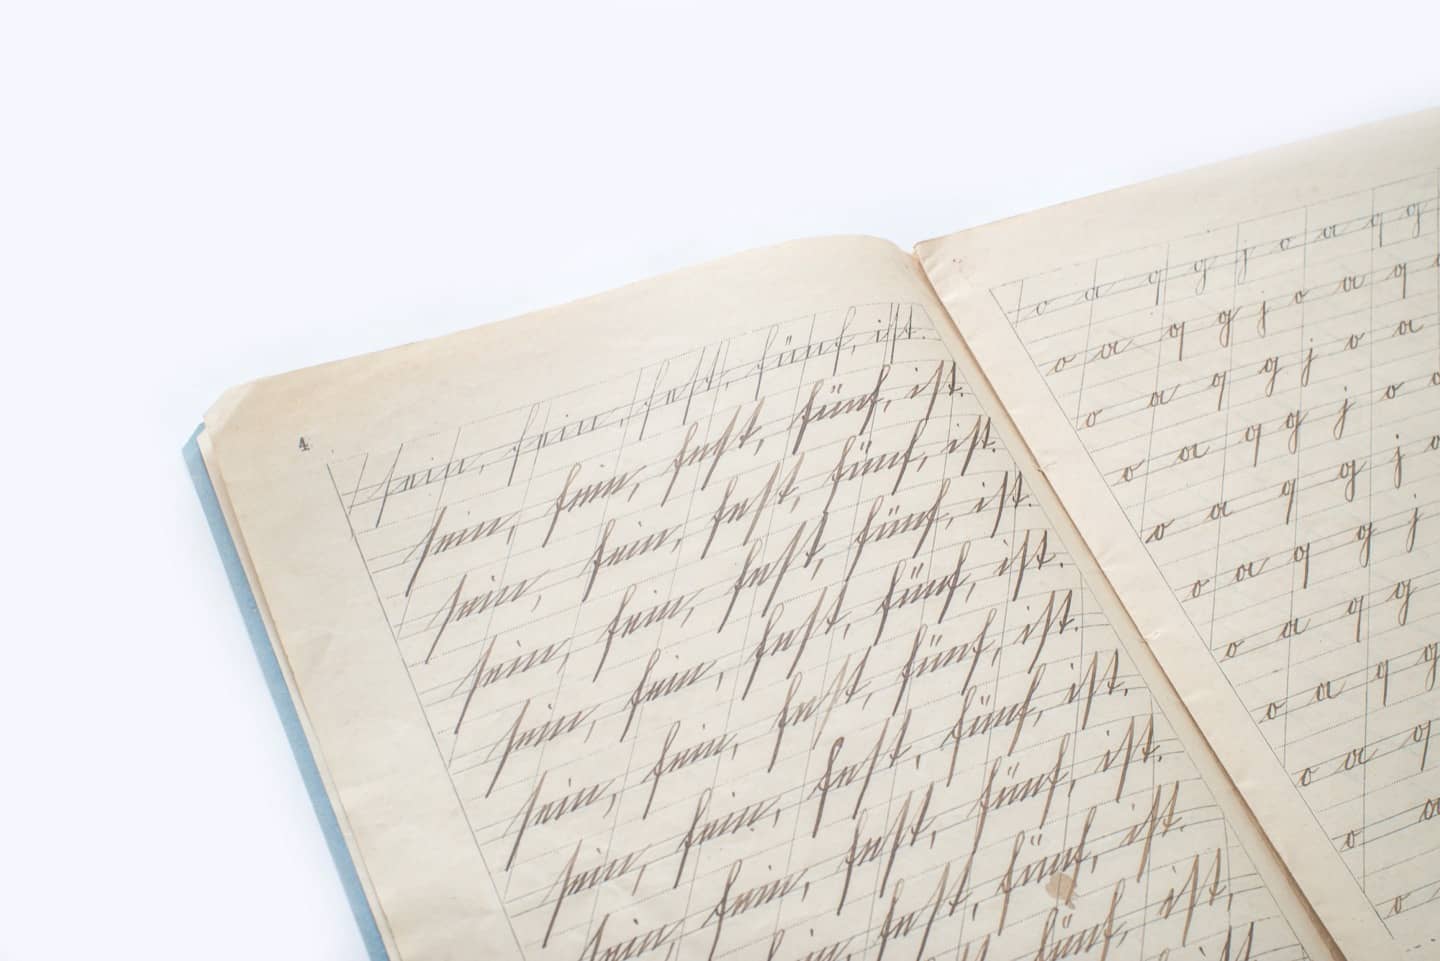 4.
sein, fein, fest, fünf, ist.
sein, fein, fest, fünf, ist.
sein, fein, fest, fünf, ist.
sein, fein, fest, fünf, ist.
sein, fein, fest, fünf, ist.
sein, fein, fest, fünf, ist.
sein, fein, fest, fünf, ist.
sein, fein, fest, fünf, ist.
fein, fest, fünf, ist.
fünf, ist.
o a q g j o a q g
o a q g j o a q
o a q g j o a
o a q g j o
o a q g j
o a q g j
o a q g
o a q g
o a q
o a
o